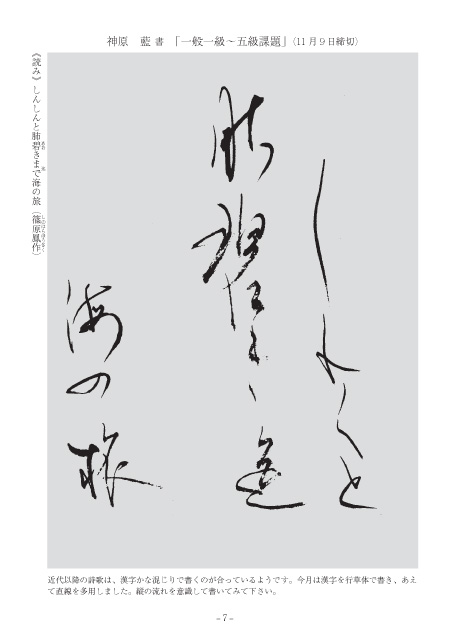 神原　藍 書　「一般一級～五級課題」（11月９日締切）
《読み》しんしんと肺碧きまで海の旅（篠原鳳作）
しんしんと
肺碧きまで
海の旅
近代以降の詩歌は、漢字かな混じりで書くのが合っているようです。今月は漢字を行草体で書き、あえ
て直線を多用しました。縦の流れを意識して書いてみて下さい。
－7－